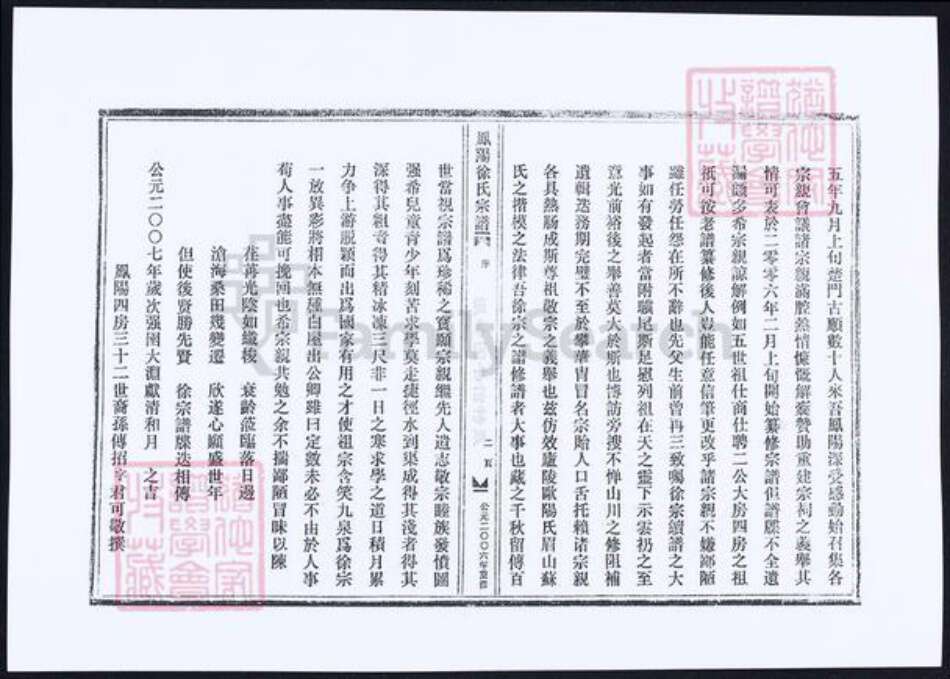 五年九月上旬楚門古順數十人來吾鳳陽深受感動始召集各
宗親會議諸宗親滿腔熱情慷慨解囊贊助重建宗祠之義舉其
情可表於二零零六年二月上旬開始纂修宗譜但譜牒不全遺
漏頗多希宗親諒解例如五世祖仕商仕聘二公大房四房之祖
祇可按老譜纂修後人豈能任意信筆更改乎諸宗親不嫌鄙陋
雖任勞任怨在所不辭也先父生前曾再三致囑徐宗續譜之大
事如有發起者當附驥尾斯足慰列祖在天之靈下示雲礽之至
意光前裕後之舉善莫大於斯也博訪旁搜不憚山川之修阻補
遺輯逸務期完璧不至於攀華冑冒名宗貽人口舌托賴诸宗親
各具熱腸成斯尊祖敬宗之義舉也兹仿效廬陵歐陽氏眉山蘇
氏之楷模之法律吾徐宗之譜修譜者大事也藏之千秋留傳百
鳳陽徐氏宗譜
序
二五
公元二〇〇六年重修
世當視宗譜爲珍稀之寶願宗親繼先人遺志敬宗睦族發憤圖
强希兒童青少年刻苦求學莫走捷徑水到渠成得其淺者得其
深得其粗者得其精冰凍三尺非一日之寒求學之道日積月累
力争上游脱穎而出爲國家有用之才使祖宗含笑九泉爲徐宗
一放異彩將相本無種白屋出公卿雖曰定數未必不由於人事
荀人事盡能可挽回也希宗親共勉之余不揣鄙陋冒昧以陳
荏苒光陰如織梭 衰齡蒞臨落日邊
滄海桑田幾變遷 欣遂心願盛世年
但使後賢勝先賢 徐宗譜牒迭相傳
公元二〇〇七年歲次强圉大淵獻清和月 之吉
鳳陽四房三十二世裔孫傳招字君可敬撰
FamilySearch